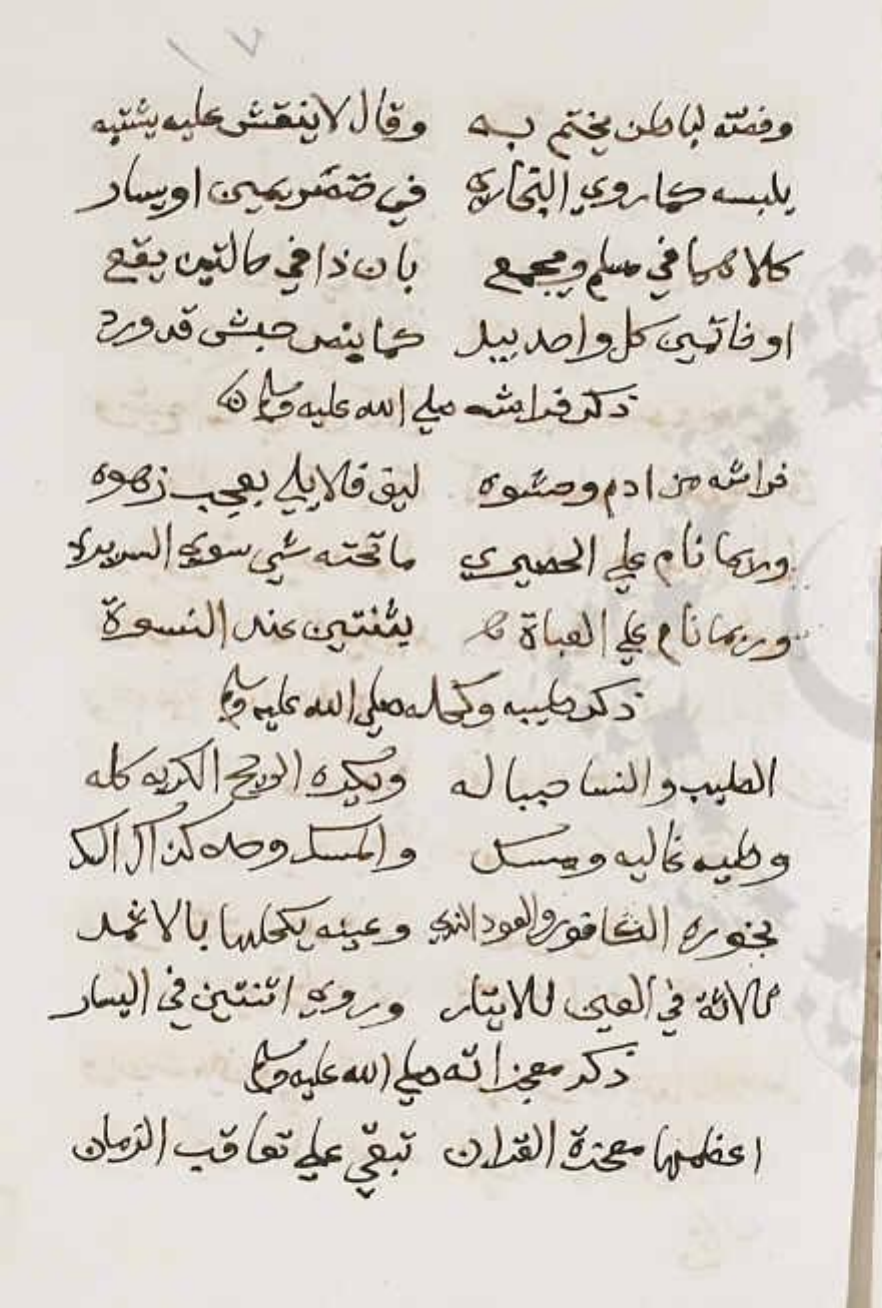 وفصه لباطن يختم به وقال لا ينقش عليه يشتبه
يلبسه كما روي البخاري في خنصر يمين او يسار
كلاهما في مسلم ويجمع بان ذا في حالتين يقع
او خاتمين كل واحد بيد كما بنص حبشي قد ورد
ذكر فراشه صلي الله عليه وسلم
فراشه من ادم وحشوه ليف فلا يلي بعجب زهوه
وربما نام علي الحصيري ما تحته شي سوي السريري
وربما نام علي العباة بثنتين عند النسوة
ذكر طيبه وكحله صلي الله عليه وسلم
الطيب والنسا حببا له ويكره الريح الكريه كله
وطيبه غاليه ومسك والمسك وحده كذاك السك
بخوره الكافور والعود الندي وعينه يكحلها بالاثمد
ثلاثة في العين للايتار وروي اثنتين في اليسار
ذكر معجزاته صلي الله عليه وسلم
اعظمها معجزة القران تبقي علي تعاقب الزمان